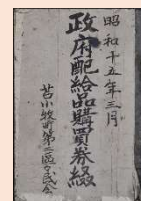 昭和十五年三月
政府配給品購買券綴
苫小牧町第三區町会